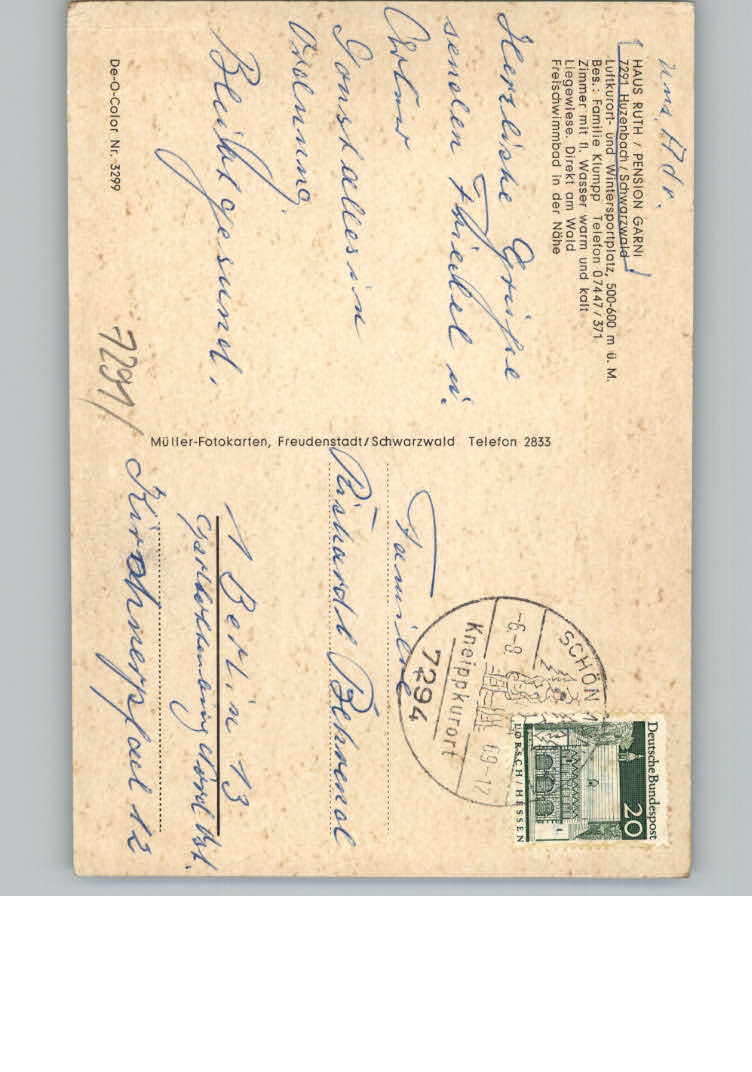 uns. Adr.
HAUS RUTH / PENSION GARNI
7291 Huzenbach / Schwarzwald
Luftkurort- und Wintersportplatz, 500-600 m ü. M.
Bes.: Familie Klumpp Telefon 07447 / 371
Zimmer mit fl. Wasser warm und kalt
Liegewiese. Direkt am Wald
Freischwimmbad in der Nähe
Herzliche Grüße
senden Thiebel u.
Sonst alles in
Ordnung.
Bleibt gesund.
De-O-Color Nr. 3299
7291/
Müller-Fotokarten, Freudenstadt/Schwarzwald Telefon 2833
Deutsche Bundespost
20
LORSCH / HESSEN
SCHÖN
-6.-8
69-12
Kneippkurort
7294
Familie
Richardt Behrend
1 Berlin 13
Charlottenburg Nord
Kirchnerpfad 12